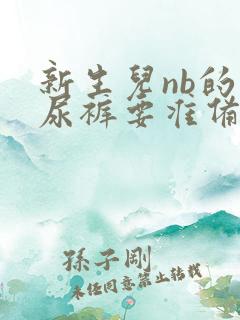 新生兒nb的
尿裤要准備
孫子剛
未经同意禁止转载